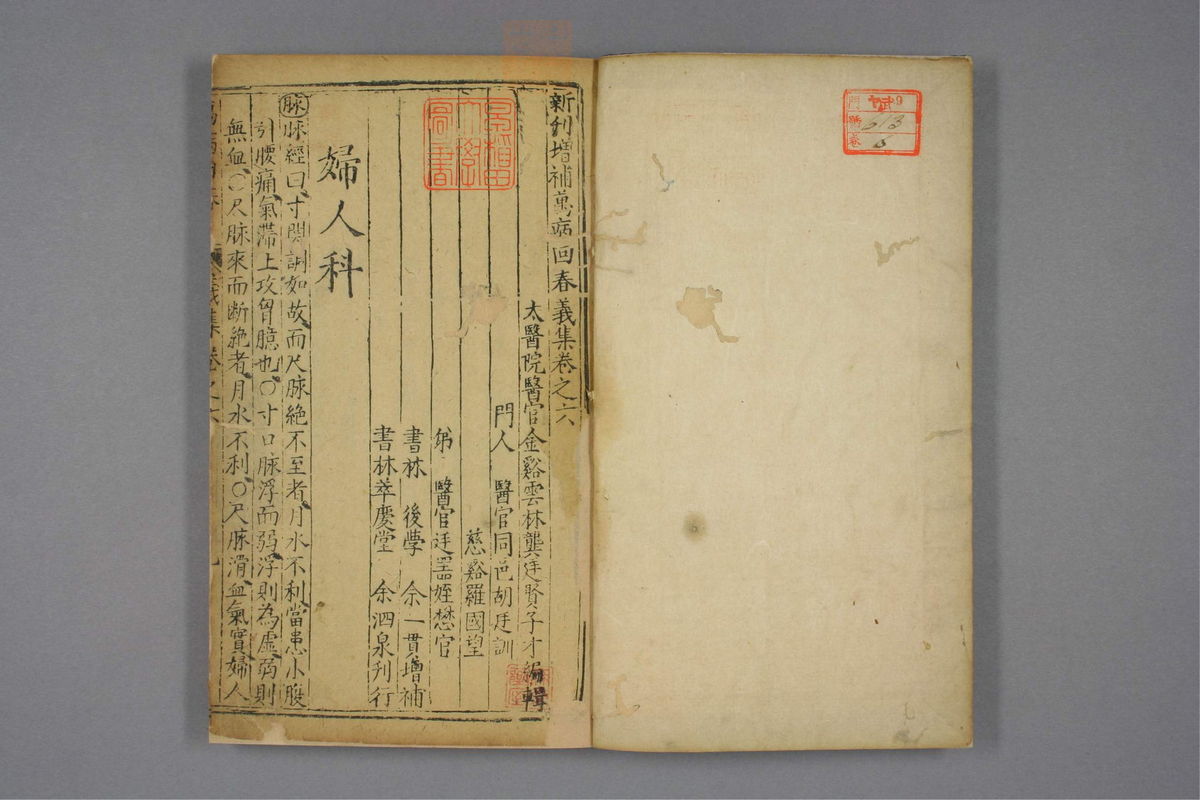 新刊增補萬病回春義集卷之六
太醫院醫官金谿雲林龔廷賢子才編輯
門人　醫官同邑胡廷訓
慈谿羅國望
弟　醫官廷器姪懋官
書林　後學　余一貫增補
書林萃慶堂　余泗泉刊行
婦人科
脉脉經曰寸関調如故而尺脉絶不至者月水不利當患小腹
引腰痛氣滯上攻胷臆也〇寸口脉浮而弱浮則為虛弱則
無血〇尺脉來而断絶者月水不利〇尺脉滑血氣實婦人
義集 卷之六
門
號 613
卷 6